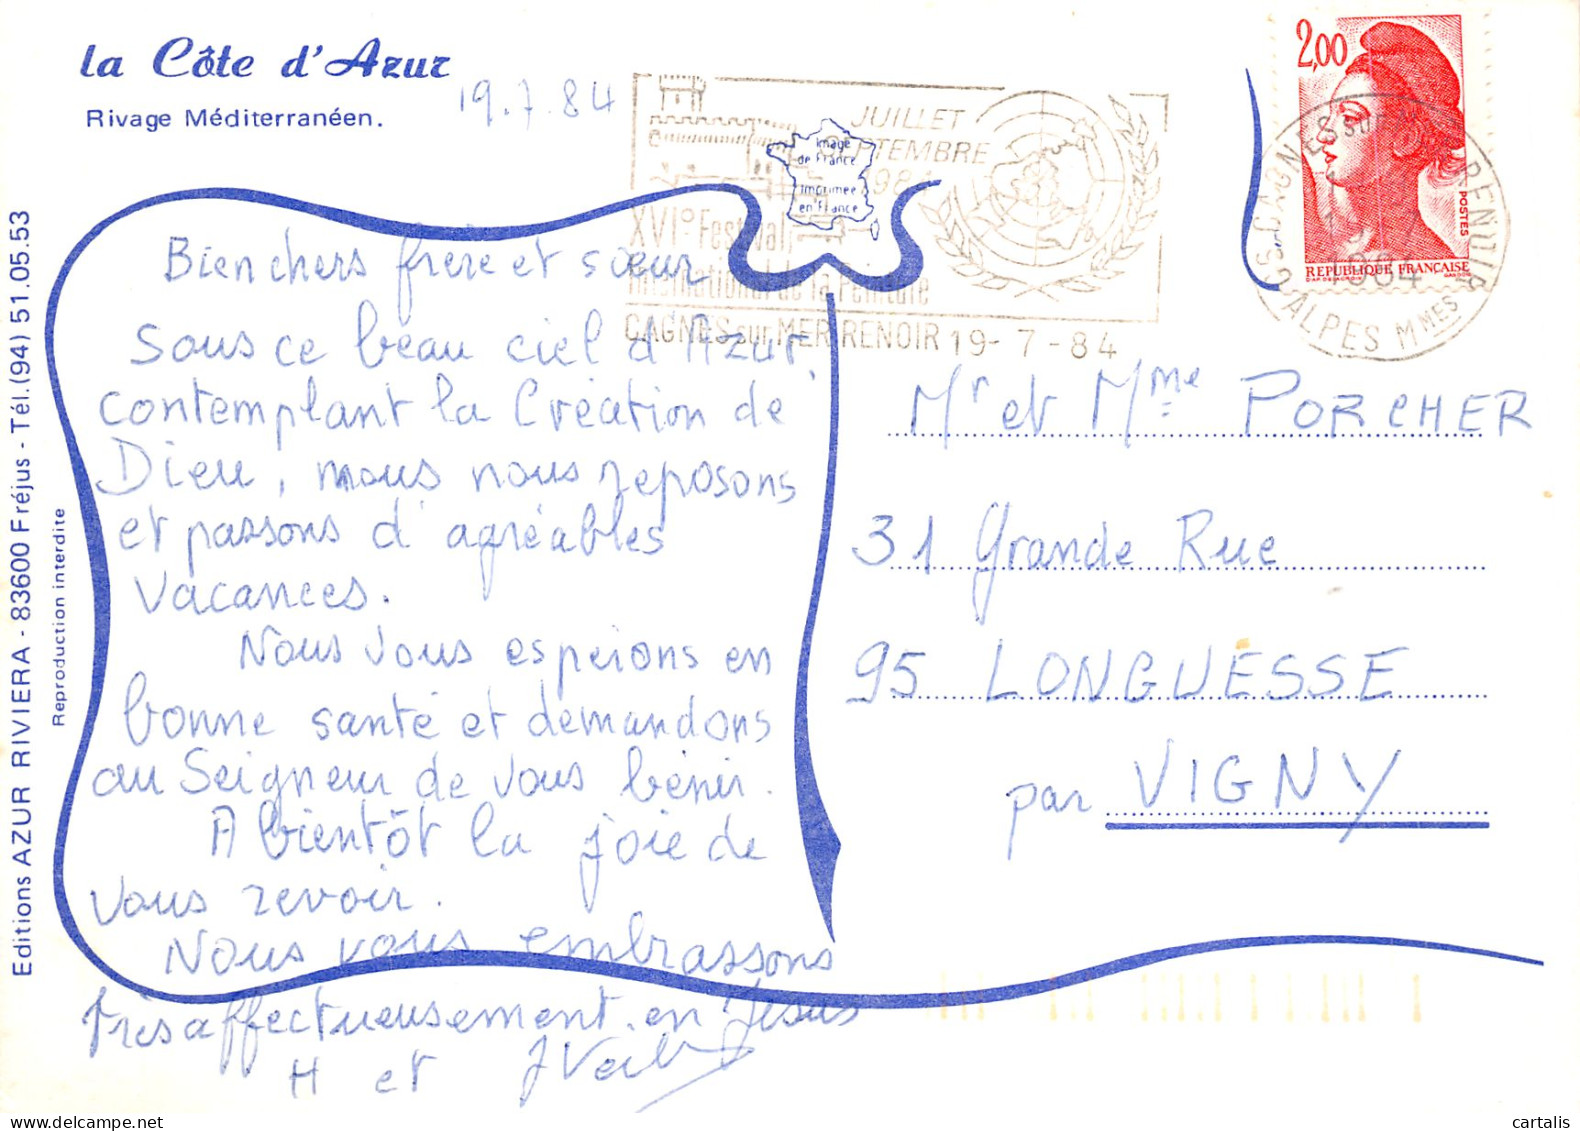 la Côte d'Azur
Rivage Méditerranéen.
19.7.84
JUILLET
SEPTEMBRE
1984
XVI° Festival
International de la Peinture
CAGNES sur MER RENOIR 19-7-84
Image
de France
Imprimée
en France
2,00
POSTES
REPUBLIQUE FRANÇAISE
CAGNES SUR MER RENOIR
1984
ALPES MMES
Bien chers frère et sœur
Sous ce beau ciel d'Azur,
contemplant la Création de
Dieu, nous nous reposons
et passons d'agréables
vacances.
Nous vous espérons en
bonne santé et demandons
au Seigneur de vous bénir.
A bientôt la joie de
vous revoir.
Nous vous embrassons
très affectueusement en Jésus
H et J
Mr et Mme PORCHER
31 Grande Rue
95 LONGUESSE
par VIGNY
Editions AZUR RIVIERA - 83600 Fréjus - Tél.(94) 51.05.53
Reproduction interdite
cartalis